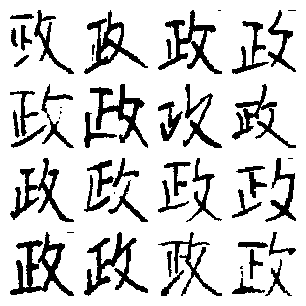 政政政政
政政政政
政政政政
政政政政